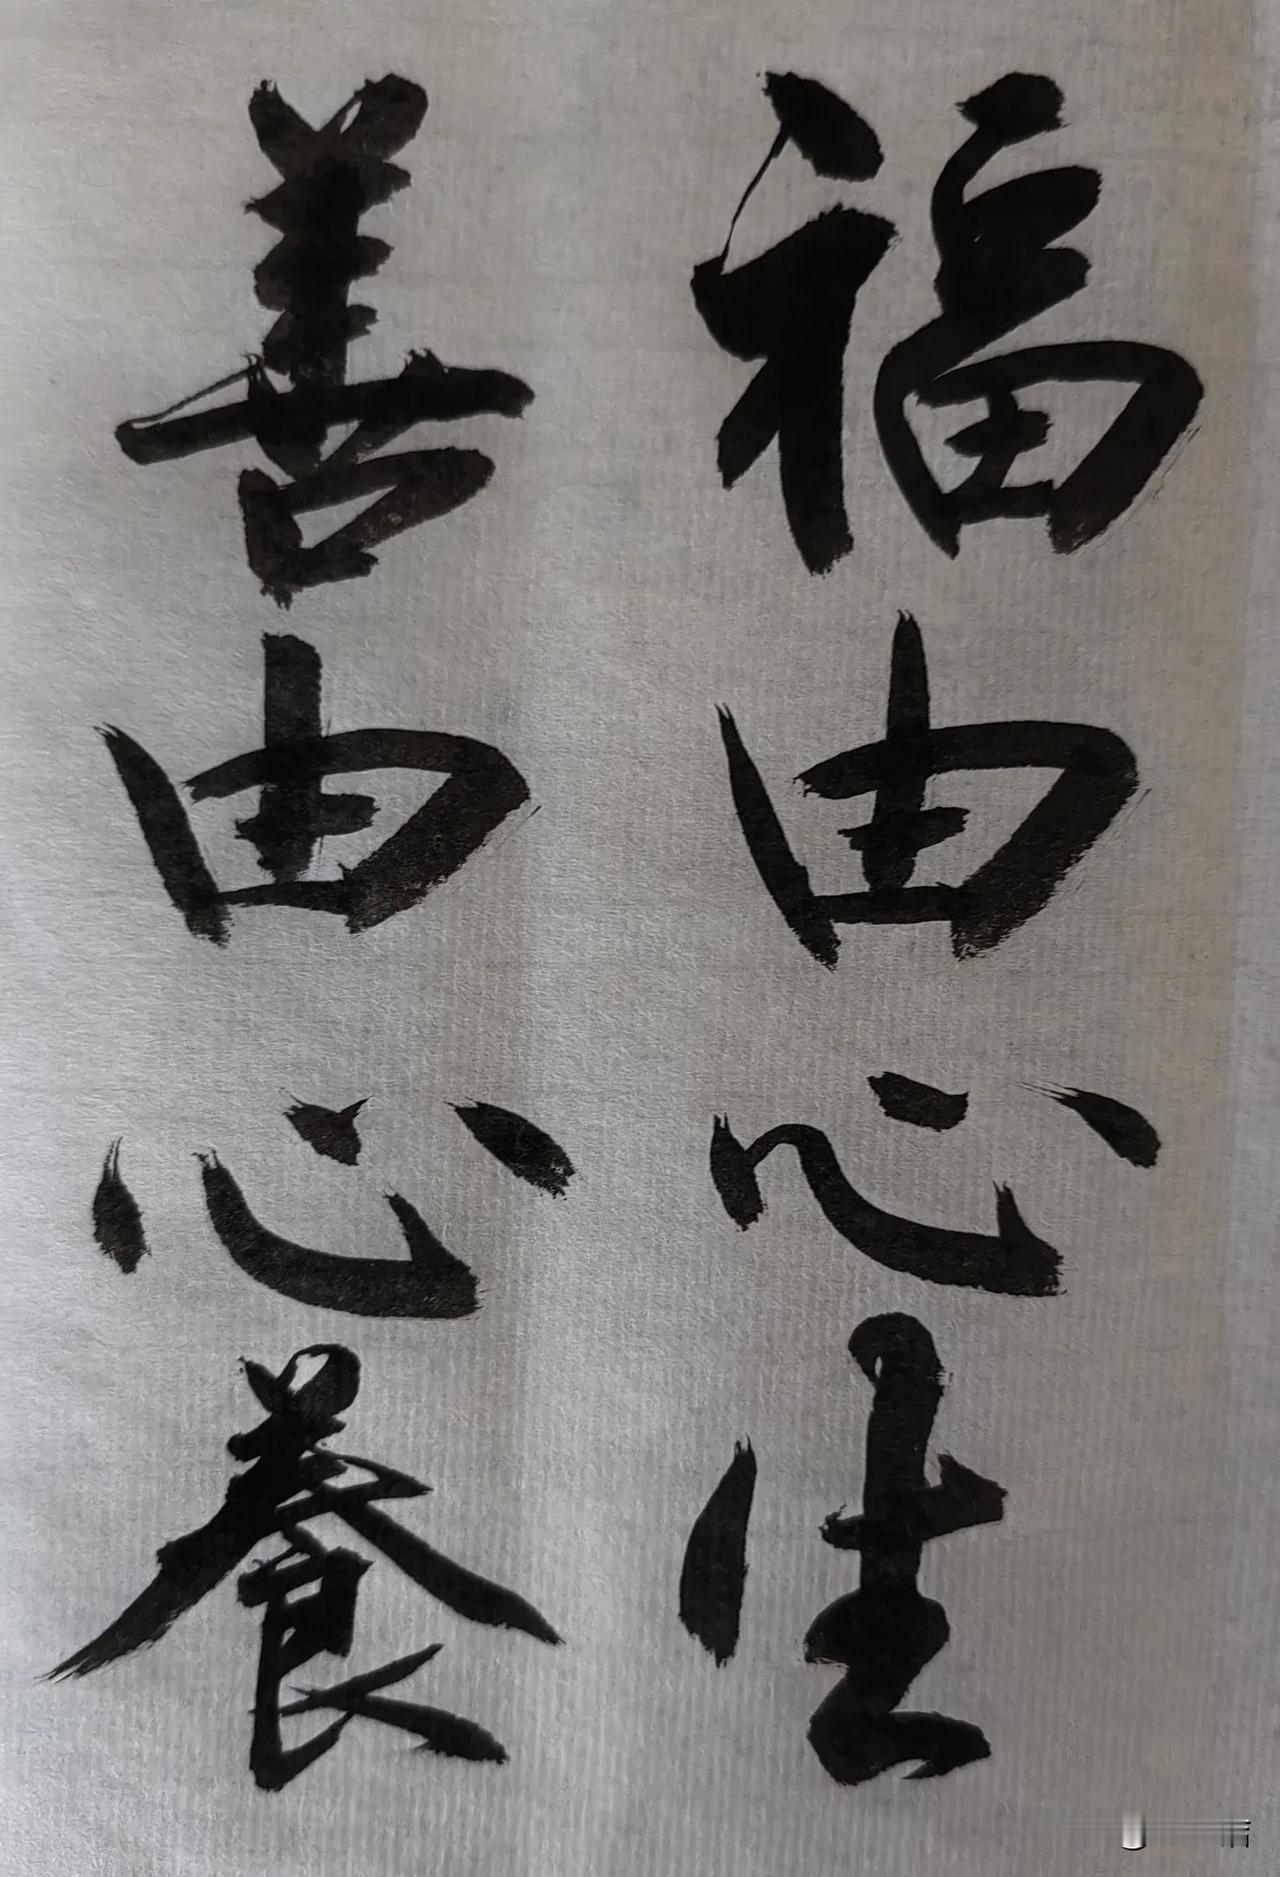 福由心生
善由心養